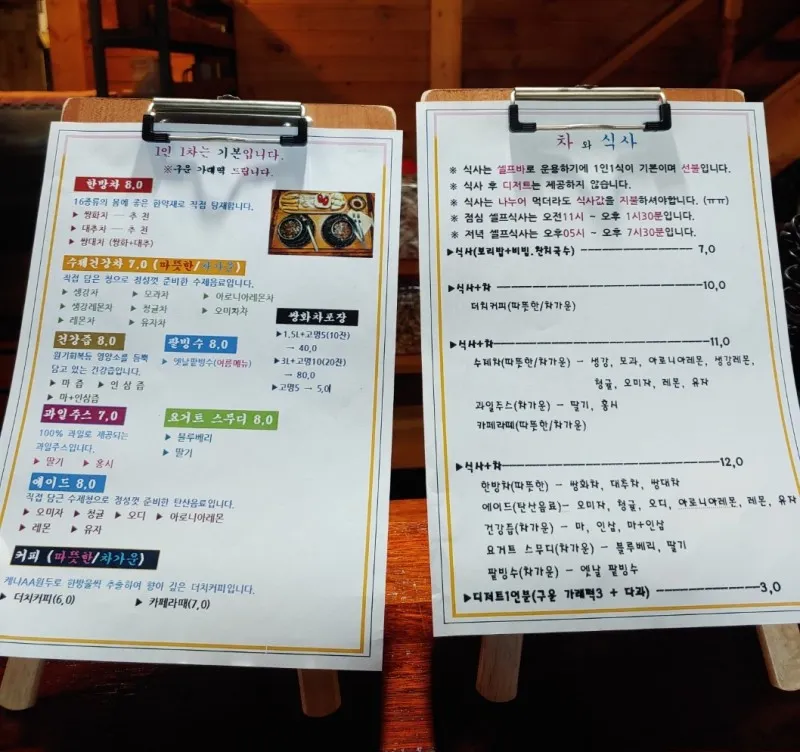 1인 1차는 기본입니다.
※구운 가래떡 드립니다.
한방차 8,0
16종류의 몸에 좋은 한약재로 직접 담재합니다.
▶ 쌍화차 ― 추 천
▶ 대추차 ― 추 천
▶ 쌍대차 (쌍화+대추)
수제건강차 7,0 (따뜻한/차가운)
직접 담은 청으로 정성껏 준비한 수제음료입니다.
▶ 생강차 ▶ 모과차 ▶ 아로니아레몬차
▶ 생강레몬차 ▶ 청귤차 ▶ 오미자차
▶ 레몬차 ▶ 유자차
쌍화차포장
▶1.5L+고명5(10잔)
→ 40,0
▶3L+고명10(20잔)
→ 80,0
▶고명5 → 5,0
건강즙 8,0
원기회복등 영양소를 듬뿍
담고 있는 건강즙입니다.
▶ 마 즙 ▶ 인 삼 즙
▶ 마+인삼즙
팥빙수 8,0
▶ 옛날팥빙수(여름메뉴)
과일주스 7,0
100% 과일로 제공되는
과일주스입니다.
▶ 딸기 ▶ 홍시
요거트 스무디 8,0
▶ 블루베리
▶ 딸기
에이드 8,0
직접 담근 수제청으로 정성껏 준비한 탄산음료입니다.
▶ 오미자 ▶ 청귤 ▶ 오디 ▶ 아로니아레몬
▶ 레몬 ▶ 유자
커피 (따뜻한/차가운)
케냐AA원두로 한방울씩 추출하여 향이 깊은 더치커피입니다.
▶ 더치커피(6,0) ▶ 카페라떼(7,0)
차 와 식사
※ 식사는 셀프바로 운용하기에 1인1식이 기본이며 선불입니다.
※ 식사 후 디저트는 제공하지 않습니다.
※ 식사는 나누어 먹더라도 식사값을 지불하셔야합니다. (ㅠㅠ)
※ 점심 셀프식사는 오전11시 ~ 오후 1시30분입니다.
※ 저녁 셀프식사는 오후05시 ~ 오후 7시30분입니다.
▶식사(보리밥+비빔.잔치국수) ――― 7,0
▶식사+차 ――― 10,0
더치커피(따뜻한/차가운)
▶식사+차 ――― 11,0
수제차(따뜻한/차가운) – 생강, 모과, 아로니아레몬, 생강레몬,
청귤, 오미자, 레몬, 유자
과일주스(차가운) – 딸기, 홍시
카페라떼(따뜻한/차가운)
▶식사+차 ――― 12,0
한방차(따뜻한) – 쌍화차, 대추차, 쌍대차
에이드(탄산음료)– 오미자, 청귤, 오디, 아로니아레몬, 레몬, 유자
건강즙(차가운) – 마, 인삼, 마+인삼
요거트 스무디(차가운) – 블루베리, 딸기
팥빙수(차가운) – 옛날 팥빙수
▶디저트1인분(구운 가래떡3 + 다과) ――― 3,0